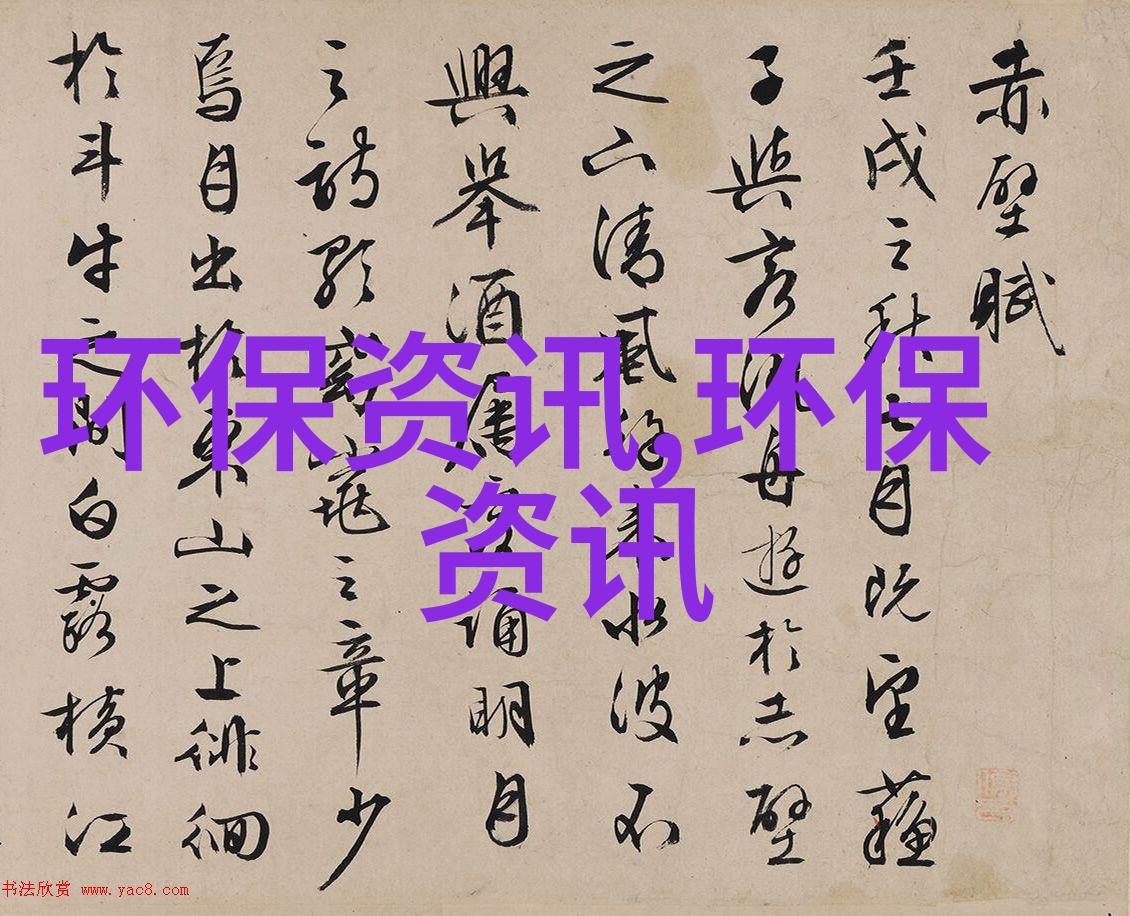 赤壁賦
壬戌之秋七月既望蘇
子與客泛舟遊於赤壁
之下清風徐來水波不
興舉酒屬客誦明月
之詩歌窈窕之章少
焉月出於東山之上徘徊
於斗牛之間白露橫江
环保资讯,环保
资讯
书法欣赏 www.yac8.com